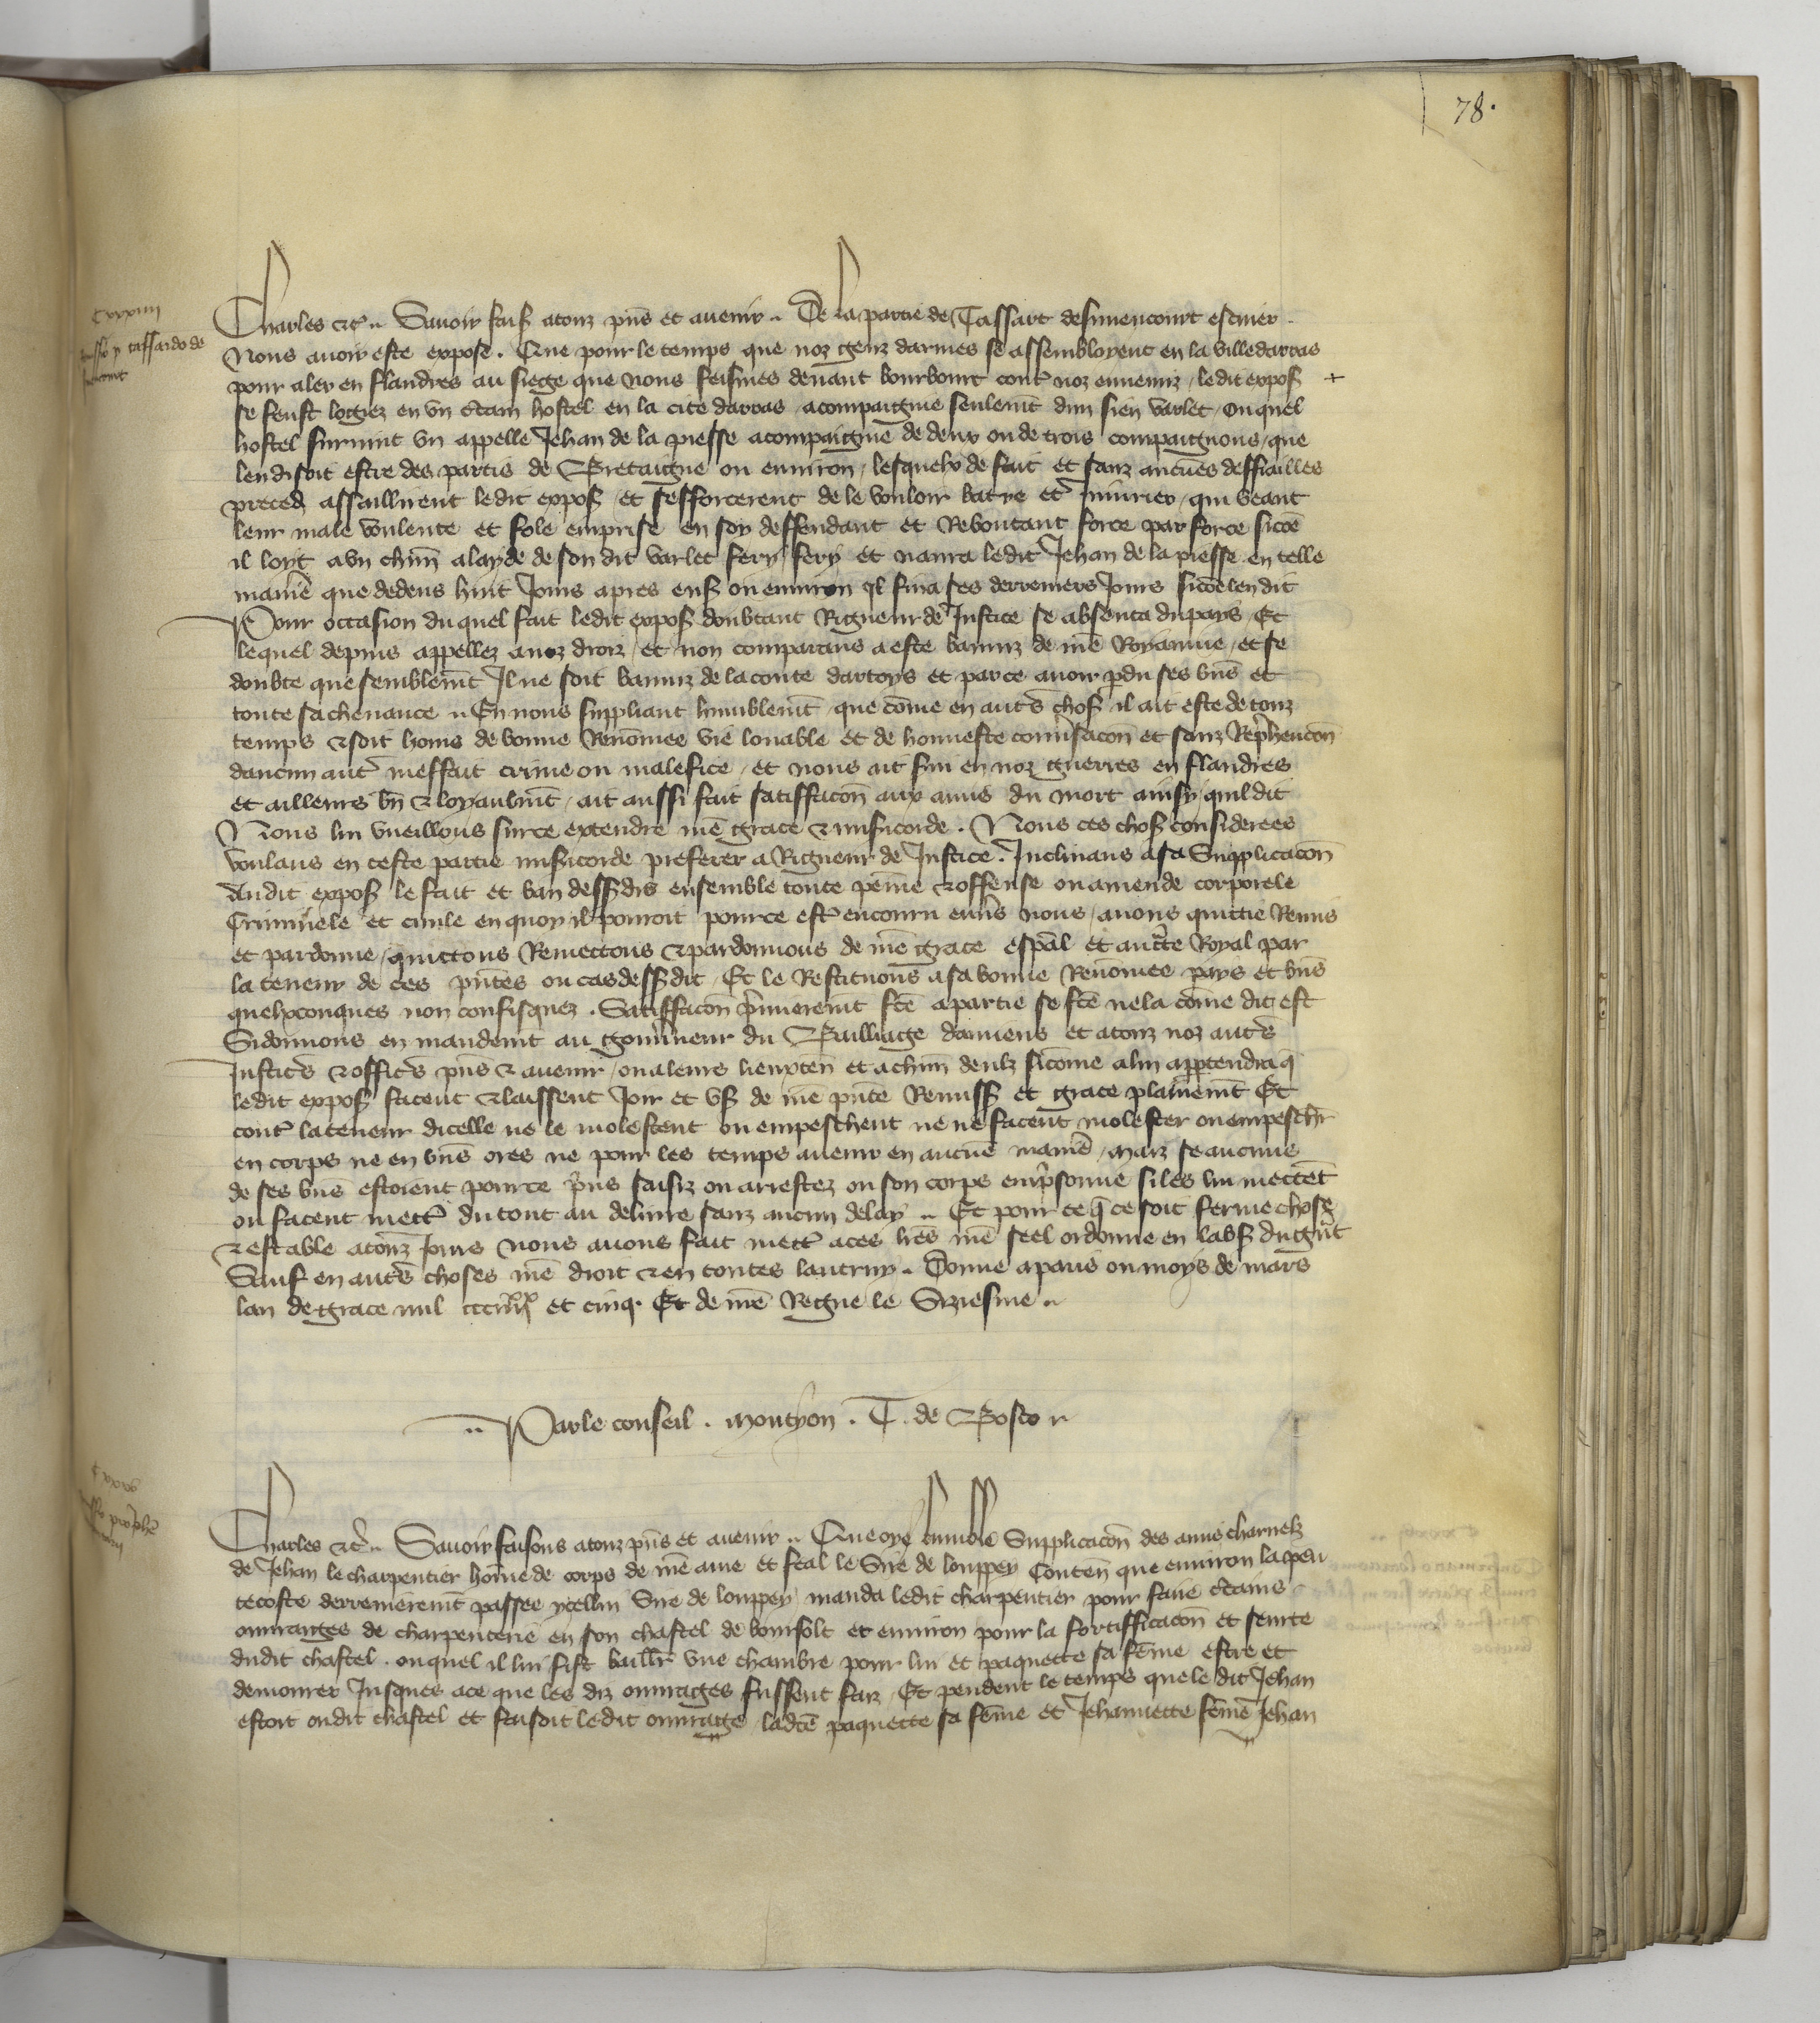 78.
cxxxiiii
Charles etc. Savoir fais. a touz pñs et avenir. De la partie de Tassart desimencourt escuier.
Nous avoir este expose. Que pour le temps que noz genz darmes se assembloyent en la ville darras
pour aler en flandres au siege que nous feismes devant bourbourt contr noz ennemiz, ledit expos
se feust logiez en un ctain hostel en la cite darras acompaignie seulemt dun sien varlet, Ouquel
hostel survint un appelle Jehan de la piesse acompaignie de deux ou de trois compaignons, que
len disoit estre des partis de Bretaigne ou environ, lesquelx de fait et sanz aucunes deffiailles
preced assaillirent ledit expos et sefforcerent de le vouloir batre et Iniurier, qui veant
leur male voulente et fole emprise en soy deffendant et Reboutant force par force sicõe
il loyt a un chũn a layde de son dit varlet fery, fery et navra ledit Jehan de la piesse en telle
manie que dedens huit Jours apres ens ou environ Il fina ses derreniers Jours sicõe len dit
Pour occasion duquel fait ledit expos doubtant Rigueur de Justice se absenta du pays, Et
lequel depuis appellez a noz droiz, et non comparans a este baniz de nre Royaume, et se
doubte que semblemt Il ne soit baniz de la conte dartoys et par ce avoir pdu ses bñs et
toute sa chevance. En nous suppliant humblemt, que cõme en autrs chos il ait este de touz
temps et soit homs de bonne Renõmee vie louable et de honneste convsacõn et sanz Reprhencõn
daucun autr meffait crime ou malefice, et nous ait svi en noz guerres en flandres
et ailleurs bñ et loyaulmt, ait aussi fait satisffacõn aux amis du mort ainsy quil dit
Nous lui vueillons sur ce extendre nre grace et misicorde. Nous ces chos considerees
voulans en ceste partie misicorde preferer a Rigueur de Justice. Inclinans a sa Supplicacõn
Audit expos le fait et ban dessdis ensemble toute peine et offense ou amende corporele
Criminele et civile en quoy il pourroit pour ce estr encouru envs nous, avons quittie Remis
et pardonne, quittons Remettons et pardonnons de nre grace espãl et auctte Royal par
la teneur de ces pñtes ou cas dessdit, Et le Restituons a sa bonne Renõmee pays et bñs
quelxconques non confisquez. Satisffacõn primieremt fce a partie se fce nela cõme dit est
Si donnons en mandemt au gouvneur du Bailliage damiens et a touz noz autrs
Justicrs et officrs pñs et avenir, ou a leurs lieuxten et a chũn deulz sicõme a lui appartendra q
ledit expos facent et laissent Joir et us de nre pñte Remiss et grace plainemt Et
contr la teneur dicelle ne le molestent ou empeschent ne ne facent molester ou empeschr
en corps ne en bñs ores ne pour les temps avenir en aucune manie, Maiz se aucuns
de ses bñs estoient pour ce prins saisiz ou arrestez ou son corps emprsonne si les lui mettet
ou facent mettr du tout au delivre sanz aucun delay. Et pour ce q̃ ce soit ferme chose
et estable a touz jours nous avons fait mettr a ces lres nre seel ordonne en labs du grãt
Sauf en autrs choses nre droit et en toutes lautruy. Donne a paris ou moys de mars
lan de grace mil ccciiiixx et cinq. Et de nre Regne le Siziesme.
Par le conseil. Montyon. T. de Bosco
cxxxv
Charles etc. Savoir faisons a touz pñs et avenir. Que oye lumble Supplicacõn des amis charnelz
de Jehan le charpentier hõme de corps de nre ame et feal le Sire de louppey Conten que environ la pen
tecoste derrenieremt passee ycellui Sire de louppey manda ledit charpentier pour faire ctains
ouvrages de charpenterie en son chastel de bourfolt et environ pour la fortifficacõn et seurte
dudit chastel. ouquel il lui fist baillr une chambre pour lui et paquette sa fẽme estre et
demourer Jusques a ce que les diz ouvrages fussent faiz, Et pendent le temps que le dit Jehan
estoit oudit chastel et faisoit ledit ouvrage, ladce paquette sa fẽme et Jehannette fẽme Jehan